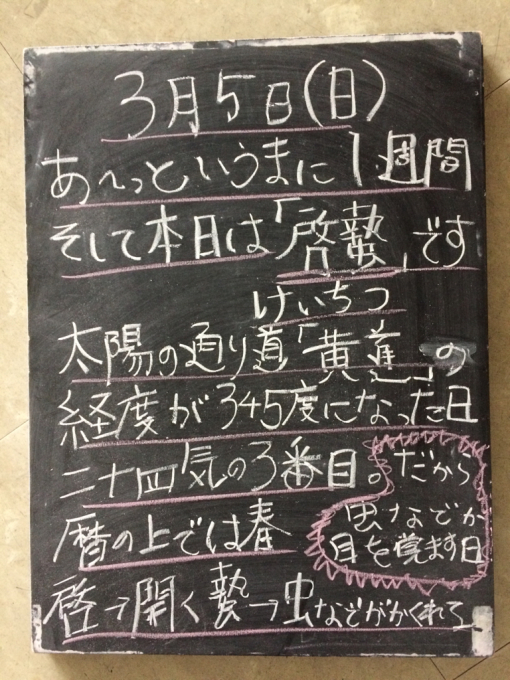 3月5日(日)
あ〜っというまに1週間
そして本日は「啓蟄」です
けいちつ
太陽の通り道「黄道」の
経度が345度になった日
二十四気の3番目。
暦の上では春
だから
虫などが
目を覚ます日
啓→開く 蟄→虫などがかくれる